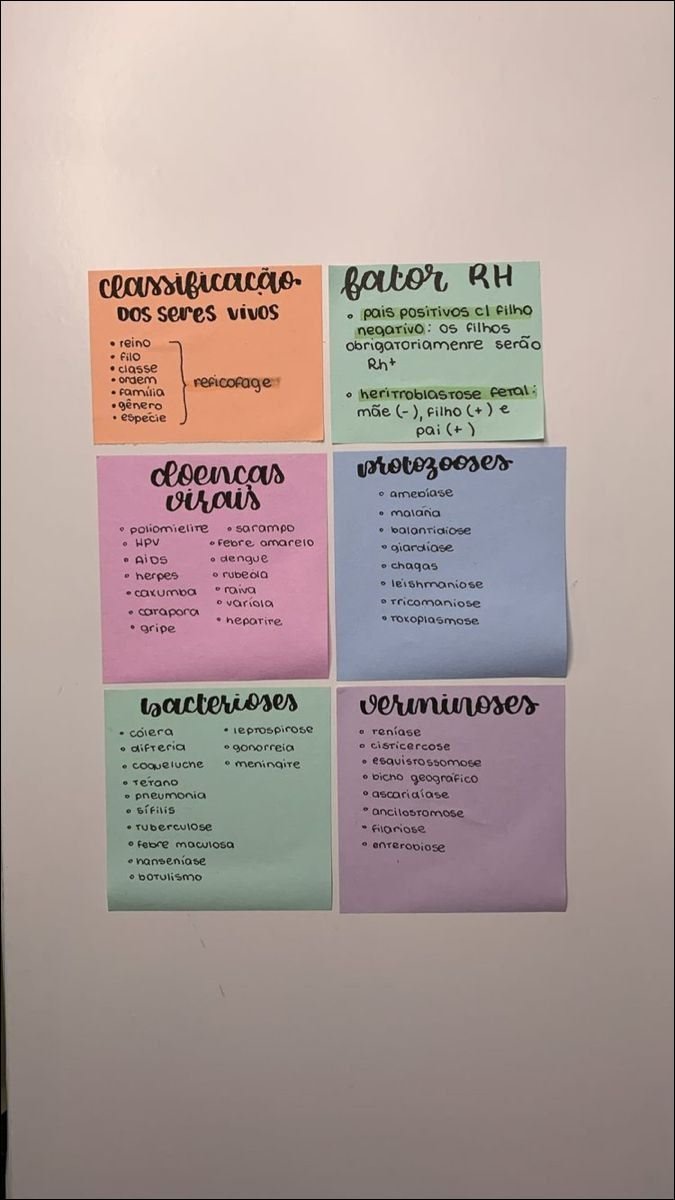 classificação
DOS SERES VIVOS
• reino
• filo
• classe
• ordem
• família
• gênero
• espécie
reficofage
fator RH
• pais positivos c/ filho
negativo: os filhos
obrigatoriamente serão
Rh+
• heritroblastose fetal:
mãe (-), filho (+) e
pai (+)
doenças
virais
• poliomielite
• HPV
• AIDS
• herpes
• caxumba
• catapora
• gripe
• sarampo
• febre amarelo
• dengue
• rubéola
• raiva
• varíola
• hepatite
protozooses
• amebíase
• malária
• balantidiose
• giardíase
• chagas
• leishmaniose
• tricomaniose
• toxoplasmose
bacterioses
• cólera
• difteria
• coqueluche
• tétano
• pneumonia
• sífilis
• tuberculose
• febre maculosa
• hanseníase
• botulismo
• leprospirose
• gonorreia
• meningite
verminoses
• teníase
• cisticercose
• esquistossomose
• bicho geográfico
• ascaridíase
• ancilostomose
• filariose
• enterobiose